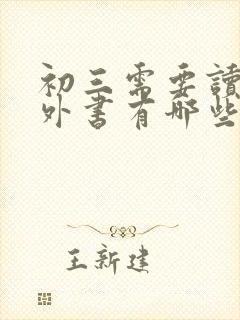 初三需要讀
外書有哪些
王新建